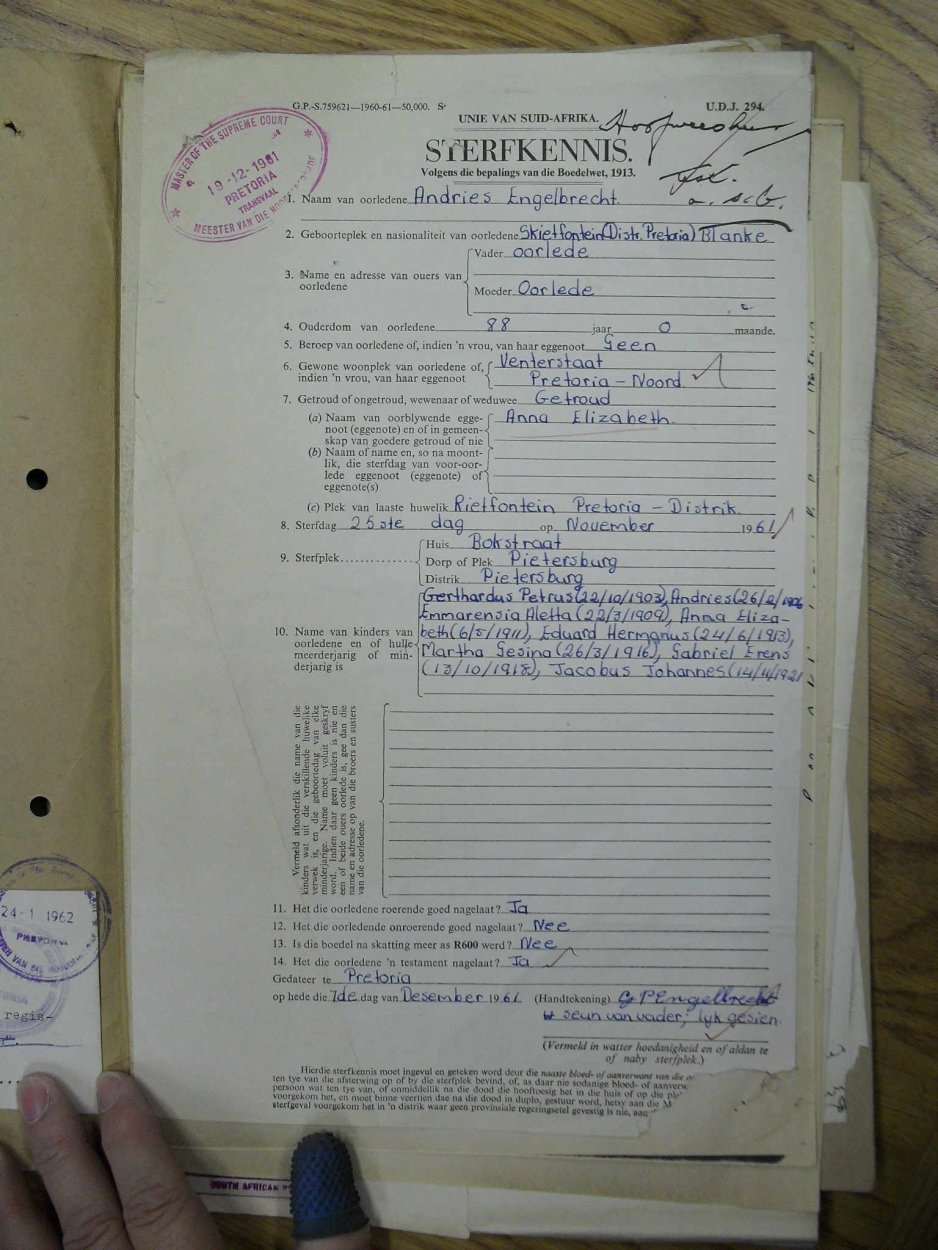 G.P.-S.759621—1960-61—50,000. S-
U.D.J. 294.
UNIE VAN SUID-AFRIKA.
STERFKENNIS.
Volgens die bepalings van die Boedelwet, 1913.
MASTER OF THE SUPREME COURT
19-12-1961
PRETORIA
TRANSVAAL
MEESTER VAN DIE
1. Naam van oorledene Andries Engelbrecht.
2. Geboorteplek en nasionaliteit van oorledene Skietfontein (Distr. Pretoria) Blanke
3. Name en adresse van ouers van oorledene
Vader oorlede
Moeder Oorlede
4. Ouderdom van oorledene 88 jaar 0 maande.
5. Beroep van oorledene of, indien 'n vrou, van haar eggenoot Geen
6. Gewone woonplek van oorledene of, Venterstaat
indien 'n vrou, van haar eggenoot Pretoria – Noord.
7. Getroud of ongetroud, wewenaar of weduwee Getroud
(a) Naam van oorblywende egge- Anna Elizabeth.
noot (eggenote) en of in gemeen-
skap van goedere getroud of nie
(b) Naam of name en, so na moont-
lik, die sterfdag van voor-oor-
lede eggenoot (eggenote) of
eggenote(s)
(c) Plek van laaste huwelik Rietfontein Pretoria – Distrik.
8. Sterfdag 25ste dag op November 1961
9. Sterfplek
Huis Bokstraat
Dorp of Plek Pietersburg
Distrik Pietersburg
10. Name van kinders van
oorledene en of hulle
meerderjarig of min-
derjarig is
Gerthardus Petrus (22/10/1903), Andries (26/2/1906
Emmarensia Aletta (22/3/1909), Anna Eliza-
beth (6/5/1911), Eduard Hermanus (24/6/1913),
Martha Gesina (26/3/1916), Gabriel Erens
(13/10/1918), Jacobus Johannes (14/11/1921
Vermeld afsonderlik die name van die
kinders wat uit die verskillende huwelike
verwek is, en die geboortedag van elke
minderjarige. Name moet voluit geskryf
word. Indien daar geen kinders is nie en
een of beide ouers oorlede is, gee dan die
name en adresse op van die broers en susters
van die oorledene.
11. Het die oorledene roerende goed nagelaat? Ja
12. Het die oorledende onroerende goed nagelaat? Nee
13. Is die boedel na skatting meer as R600 werd? Nee
14. Het die oorledene 'n testament nagelaat? Ja
Gedateer te Pretoria
op hede die 7de dag van Desember 1961 (Handtekening) G P Engelbrecht
seun van vader; lyk gesien.
(Vermeld in watter hoedanigheid en of aldan te
of naby sterfplek.)
Hierdie sterfkennis moet ingevul en geteken word deur die naaste bloed- of aanverwant van die
ten tye van die afsterwing op of by die sterfplek bevind, of, as daar nie sodanige bloed- of aanverw
persoon wat ten tye van, of onmiddellik na die dood die hooftoesig het in die huis of op die
voorgekom het, en moet binne veertien dae na die dood in duplo, gestuur word, hetsy aan die M
sterfgeval voorgekom het in 'n distrik waar geen provinsiale regeringsetel gevestig is nie,
24-1 1962
regis-
SOUTH AFRICAN